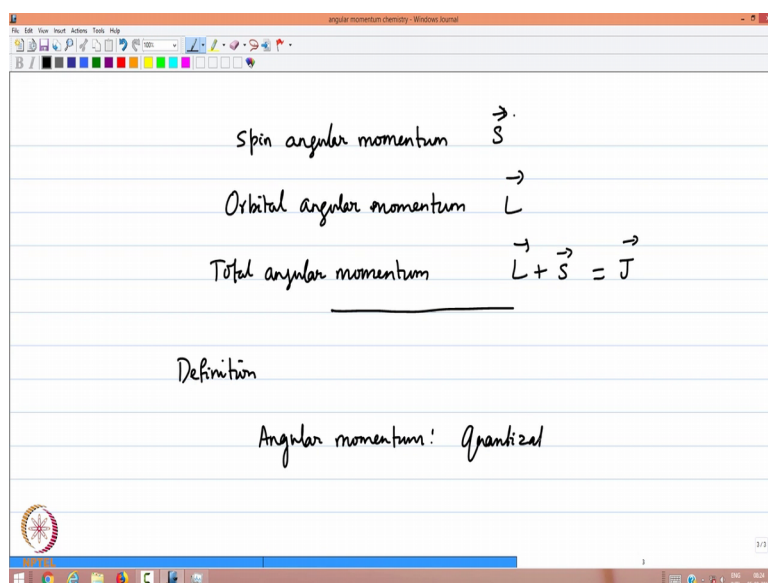 angular momentum chemistry - Windows Journal
File Edit View Insert Actions Tools Help
100%
B I
Spin angular momentum S
Orbital angular momentum L
Total angular momentum L + S = J
Definition
Angular momentum: Quantized
3/3
3
NPTEL
ENG